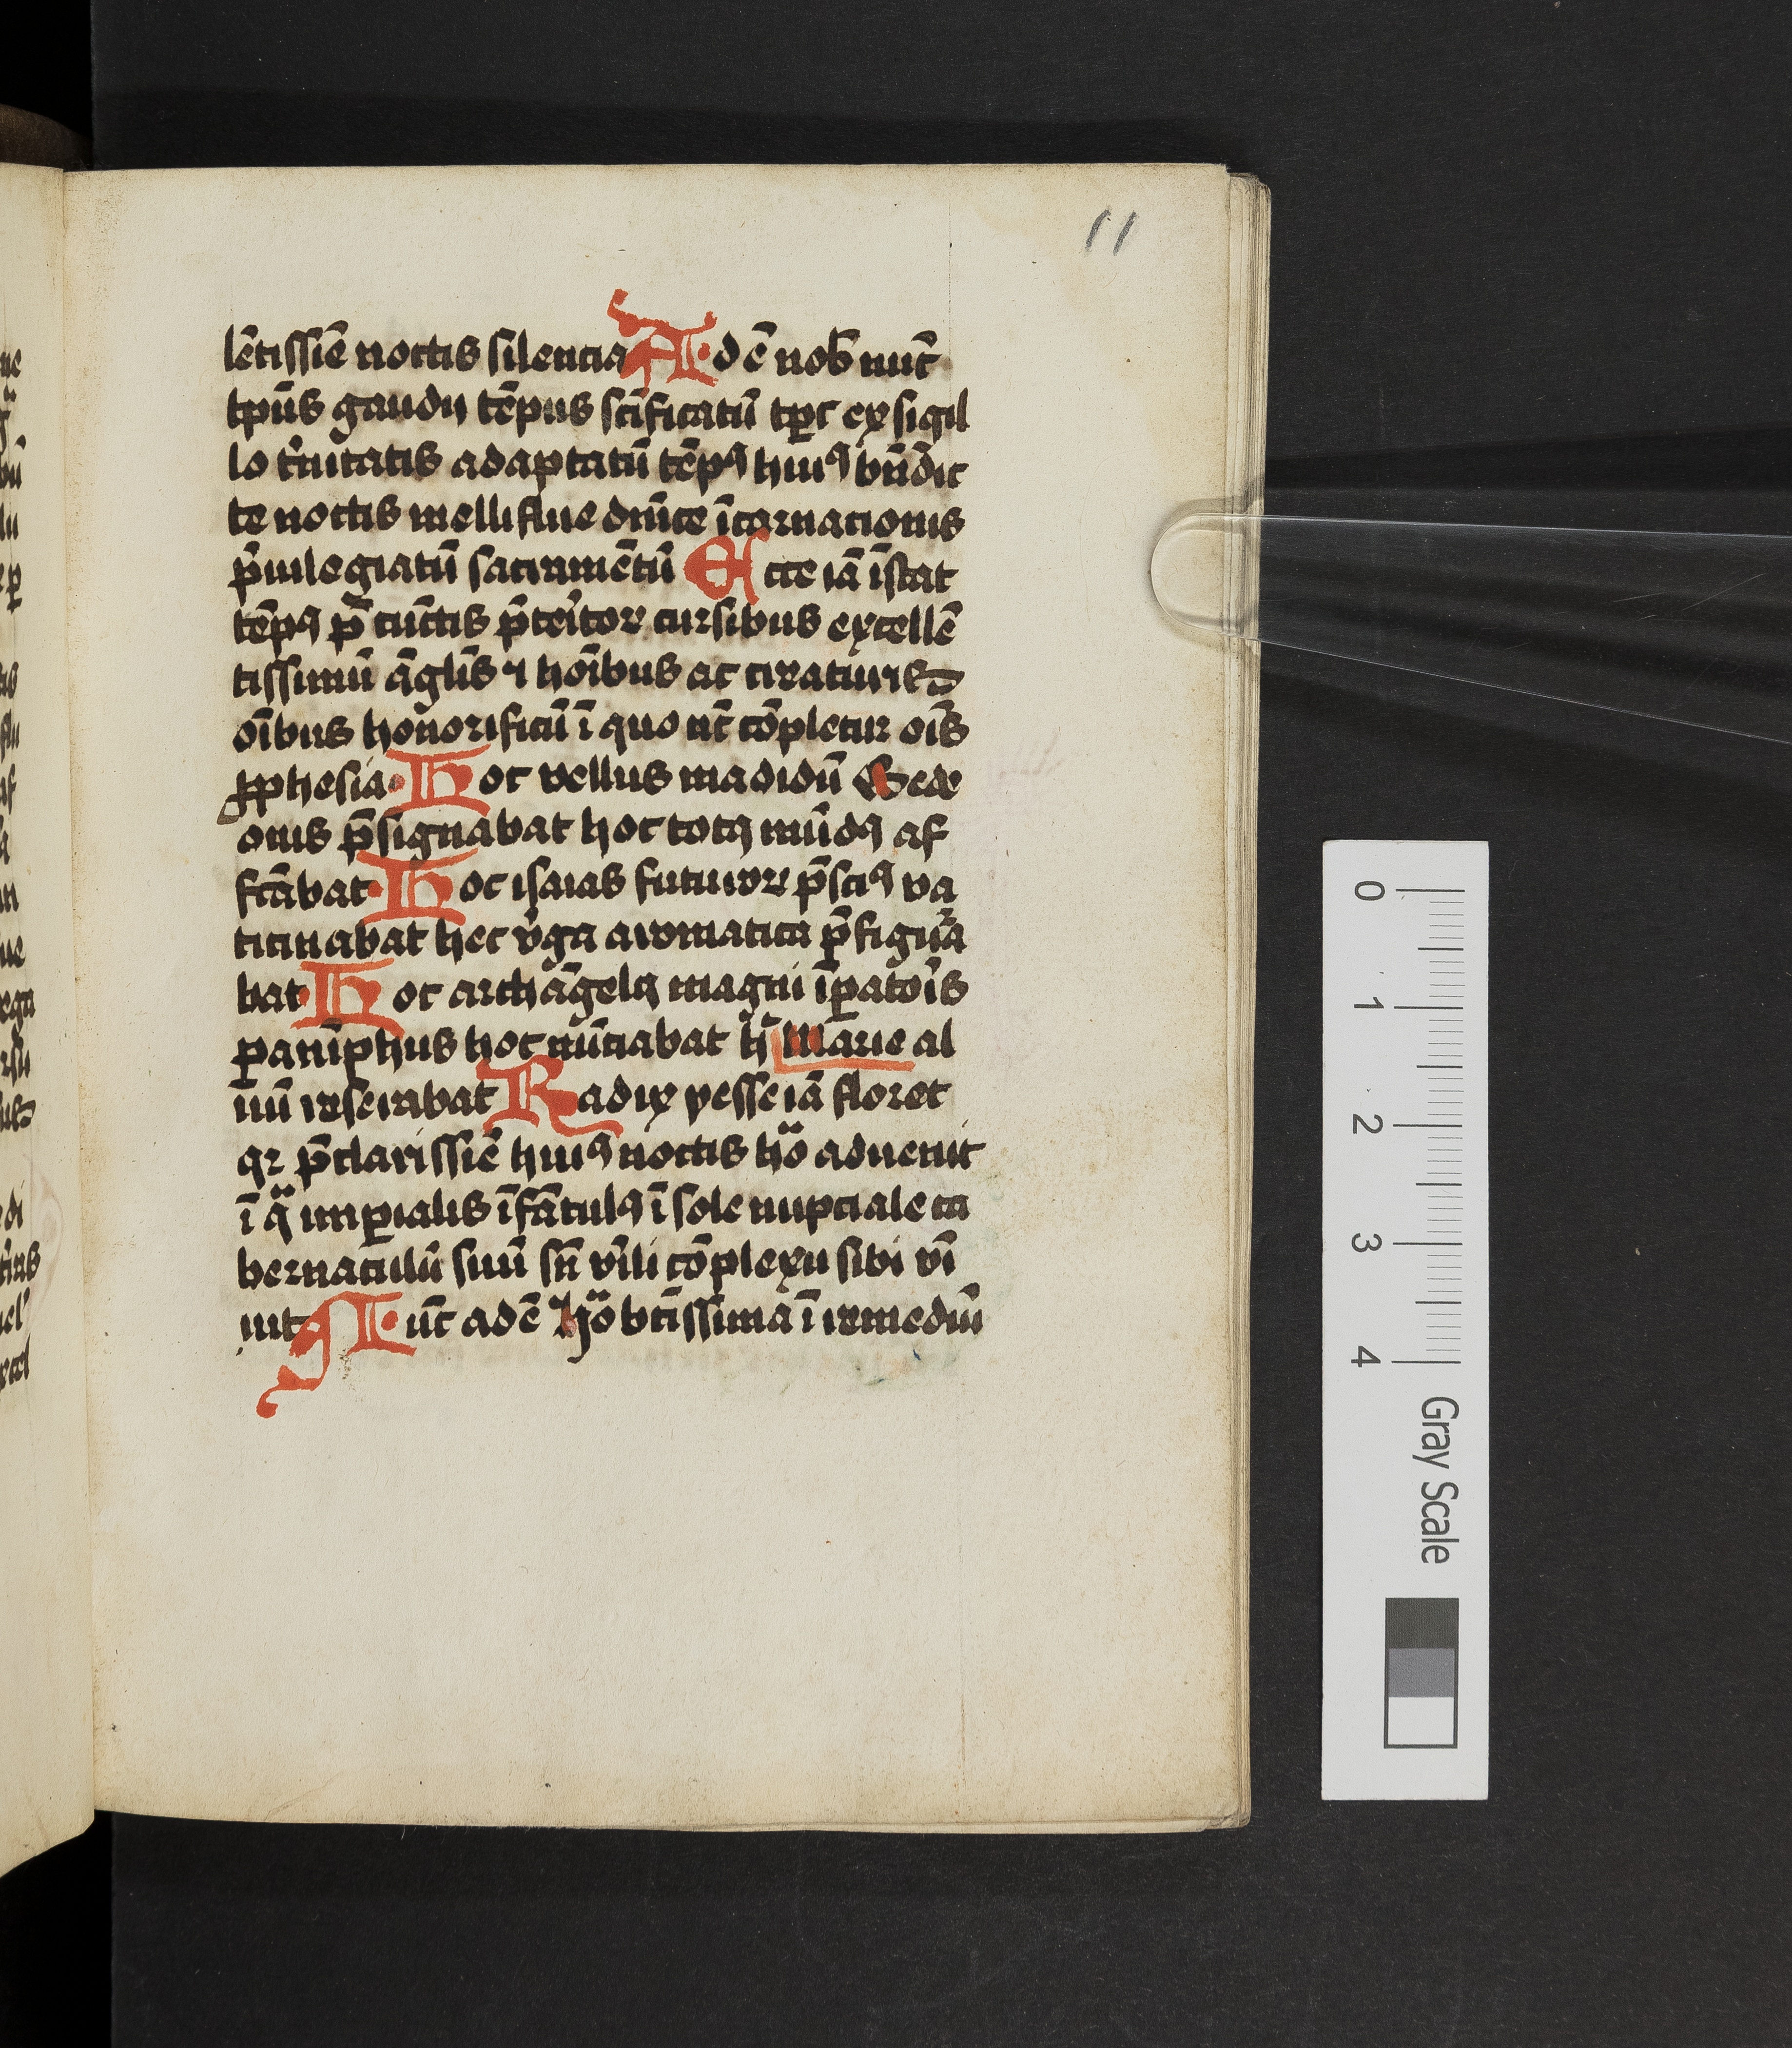 11
lētissīe noctis silencia Adē nob̄ nūc
tp̄us gaudij tēpus sc̄ificatū tp̄c ex sigil
lo t̓nitatis adaptatū tēpꝯ huiꝯ bn̄dic
te noctis melliflue diūīce īcarnacionis
p̄uilegiatū sacramētū Ecce iā īstat
tēpꝯ p̄ cūctis p̄teritor cursibus excellē
tissimū āglis ⁊ hoībus ac creaturis
oībus honorificū ī quo nūc cōpletur oīs
ꝓphesia Hoc vellus madidū Gede
onis p̄signabat hoc totꝯ mūdꝯ af
fcābat Hoc isaias futuror p̄sciꝯ va
ticinabat hec v̓ga aromatica p̄figura
bat Hoc archāgelꝯ magni īꝑatoris
paranīphus hoc nūciabat h̄ Marie al
uū reserabat Radix yesse iā floret
qr p̄clarissīe huiꝯ noctis ho̎ aduenit
ī q̎ imꝑialis īfātulꝯ ī sole nupciale ta
bernaculū suū sn̄ v̓ili cōplexu sibi vī
uit Nūc adē ho̎ btīssima ī remediū
0 1 2 3 4 Gray Scale